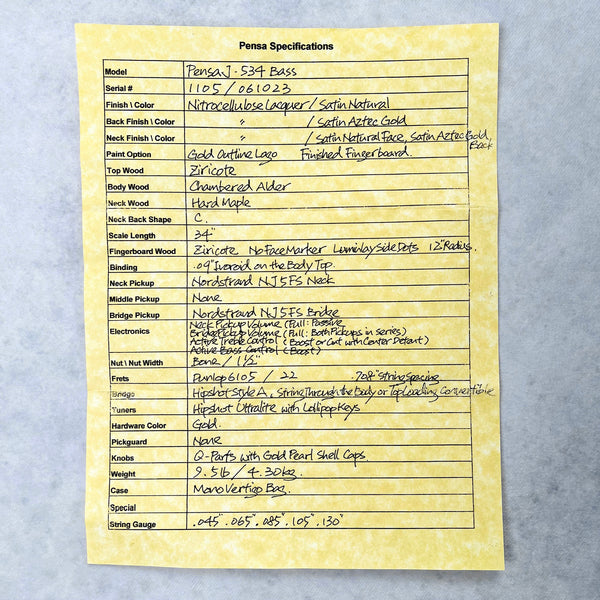 Pensa Specifications
Model PensaJ. 534 Bass
Serial # 1105 / 061023
Finish \ Color Nitrocellulose Lacquer / Satin Natural
Back Finish \ Color " / Satin Aztec Gold
Neck Finish \ Color " / Satin Natural Face, Satin Aztec Gold, Back
Paint Option Gold Outline Logo Finished Fingerboard.
Top Wood Ziricote
Body Wood Chambered Alder
Neck Wood Hard Maple
Neck Back Shape C.
Scale Length 34"
Fingerboard Wood Ziricote No Face Marker Luminlay Side Dots 12" Radius.
Binding .09" Ivoroid on the Body Top.
Neck Pickup Nordstrand NJ5FS Neck
Middle Pickup None
Bridge Pickup Nordstrand NJ5FS Bridge
Electronics Neck Pickup Volume (Pull: Passive
Bridge Pickup Volume (Pull: Both Pickups in series)
Active Treble Control (Boost or Cut with Center Detant)
Active Bass Control (Boost)
Nut \ Nut Width Bone / 1 1/2"
Frets Dunlop 6105 / 22 .708" String Spacing
Bridge Hipshot Style A, String Through the Body or Top Loading Convertible
Tuners Hipshot Ultralite with Lollipop Keys
Hardware Color Gold.
Pickguard None
Knobs Q-Parts with Gold Pearl Shell Caps
Weight 9.5lb / 4.30kg.
Case Mono Vertigo Bag.
Special
String Gauge .045" .065" .085" .105" .130"